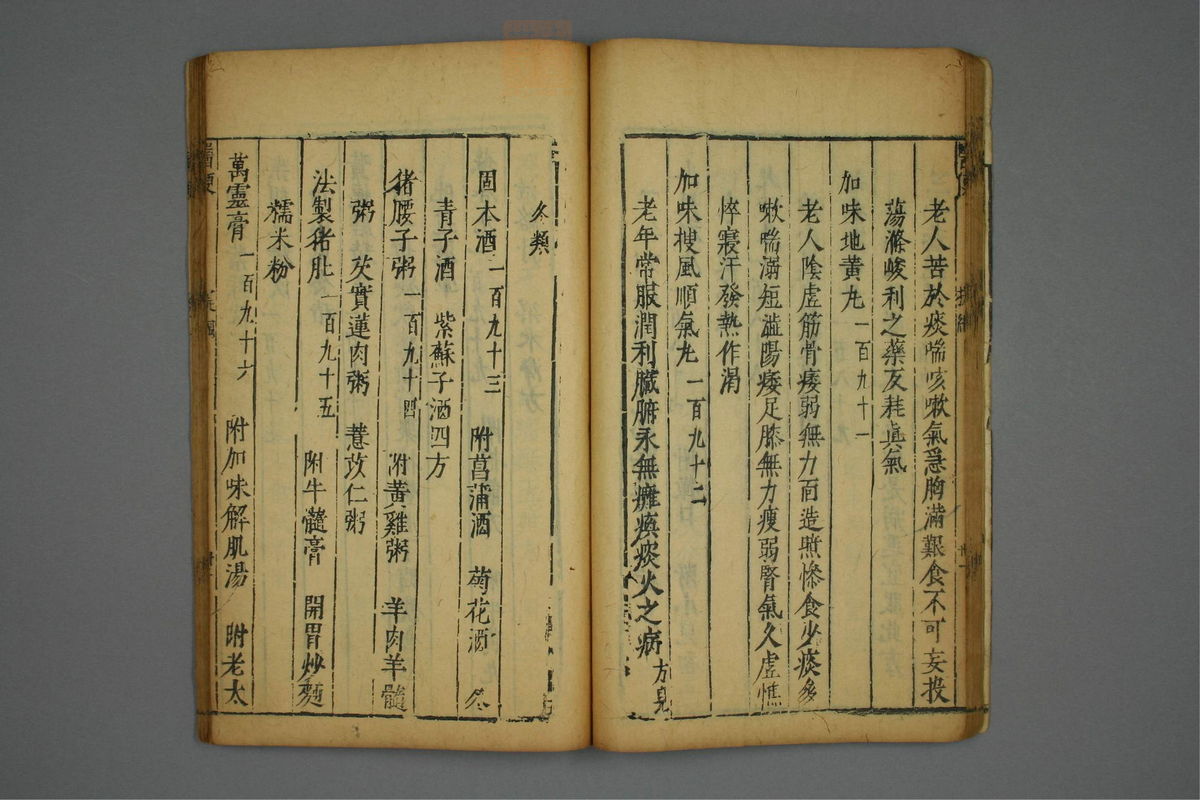 老人苦於痰喘咳嗽氣急胸滿艱食不可妄投
蕩滌峻利之藥反耗眞氣
加味地黃丸一百九十一
老人陰虛筋骨痿弱無力面造㷔慘食少痰多
嗽喘溺短澁陽痿足膝無力瘦弱腎氣久虛憔
悴寢汗發熱作渴
加味搜風順氣丸一百九十二
老年常服潤利臟腑永無癱瘓痰火之病方見
冬類
固本酒一百九十三 附菖蒲酒 菊花酒 冬
青子酒 紫蘇子酒四方
猪腰子粥一百九十四 附黃雞粥 羊肉羊髓
粥 芡實蓮肉粥 薏苡仁粥
法製猪肚一百九十五 附牛髓膏 開胃炒麵
糯米粉
萬靈膏一百九十六 附加味解肌湯 附老太